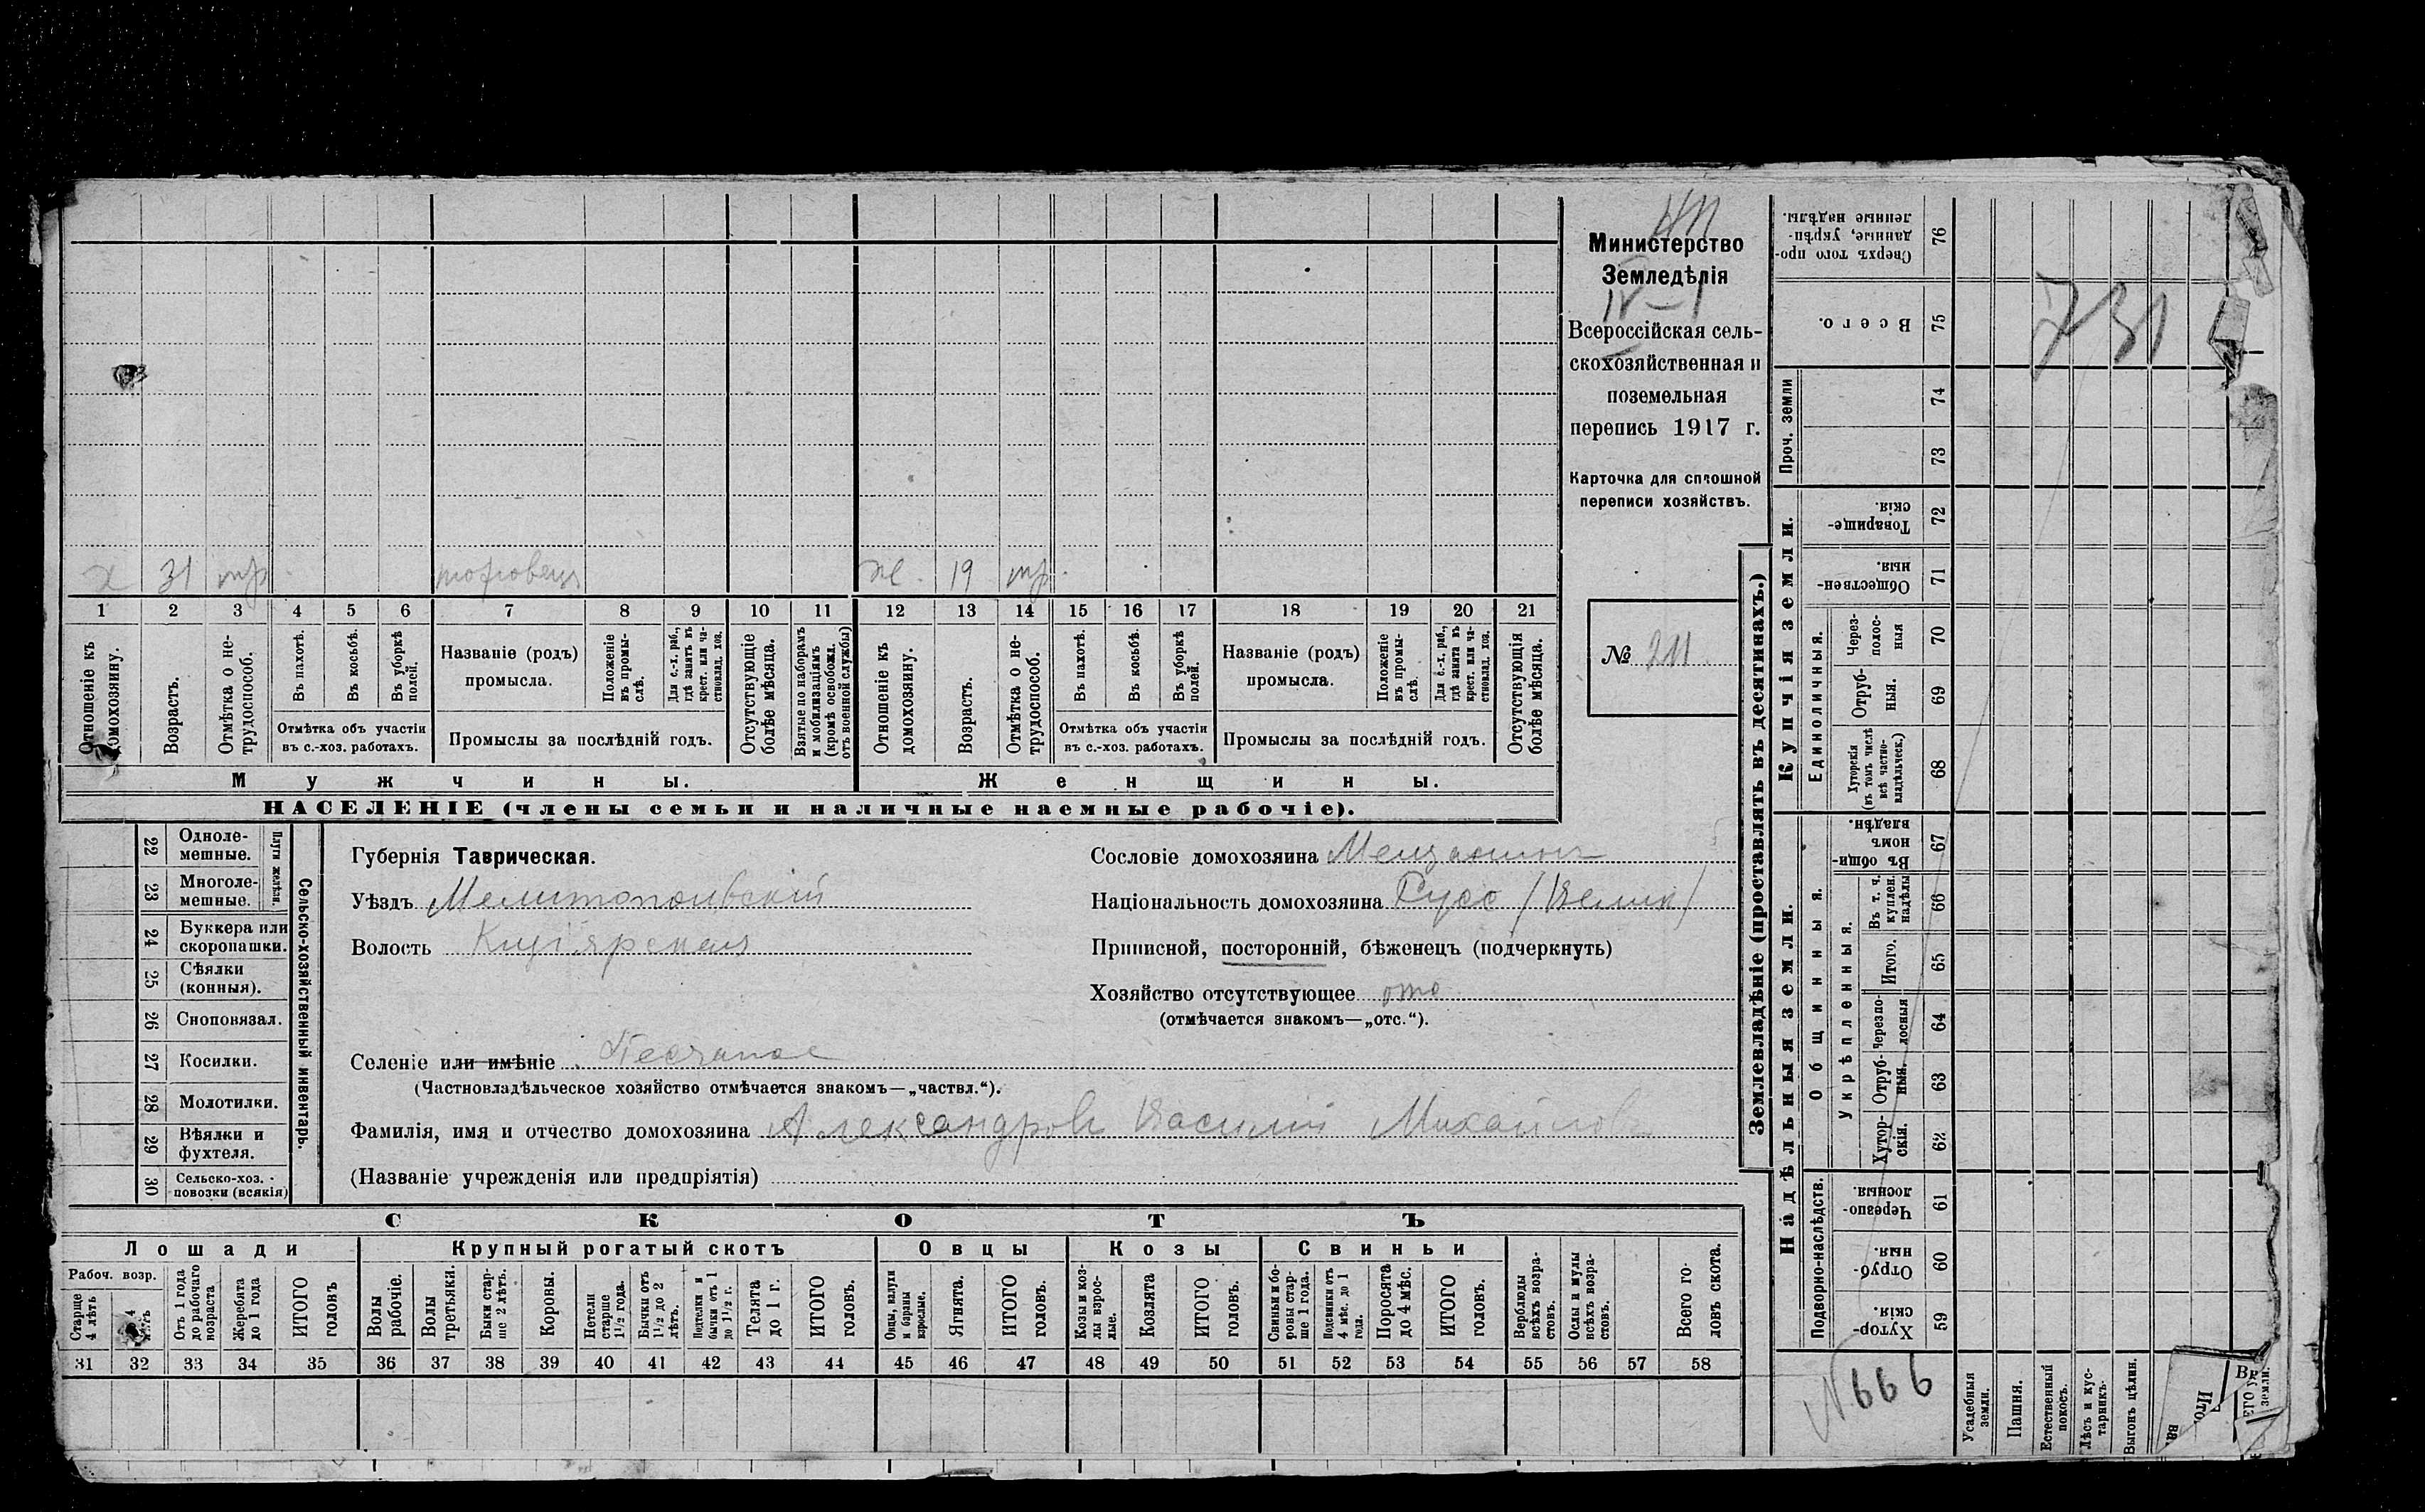 х 31 тр. торговецъ ж. 19 тр.
1 2 3 4 5 6 7 8 9 10 11 12 13 14 15 16 17 18 19 20 21
Отношеніе къ домохозяину.
Возрастъ.
Отмѣтка о не-
трудоспособ.
Въ пахотѣ.
Въ косьбѣ.
Въ уборкѣ полей.
Отмѣтка объ участіи
въ с.-хоз. работахъ.
Названіе (родъ)
промысла.
Положеніе въ промы-
слѣ.
Для с.-х. раб.,
гдѣ занятъ въ
крест. или ча-
стновлад. хоз.
Промыслы за послѣдній годъ.
Отсутствующіе
болѣе мѣсяца.
Взятые по наборамъ
и мобилизаціямъ
(кромѣ освобожд.
отъ военной службы)
Отношеніе къ
домохозяину.
Возрастъ.
Отмѣтка о не-
трудоспособ.
Въ пахотѣ.
Въ косьбѣ.
Въ уборкѣ
полей.
Отмѣтка объ участіи
въ с.-хоз. работахъ.
Названіе (родъ)
промысла.
Положеніе
въ промы-
слѣ.
Для с.-х. раб.,
гдѣ занята въ
крест. или ча-
стновлад. хоз.
Промыслы за послѣдній годъ.
Отсутствующія
болѣе мѣсяца.
Мужчины.
Женщины.
НАСЕЛЕНІЕ (члены семьи и наличные наемные рабочіе).
Министерство
Земледѣлія
IV-1
Всероссійская сель-
скохозяйственная и
поземельная
перепись 1917 г.
Карточка для сплошной
переписи хозяйствъ.
№ 211
22 Одноле-
мешные.
23 Многоле-
мешные.
Плуги желѣзн.
24 Буккера или
скоропашки.
25 Сѣялки
(конныя).
26 Сноповязал.
27 Косилки.
28 Молотилки.
29 Вѣялки и
фухтеля.
30 Сельско-хоз.
повозки (всякія)
Сельско-хозяйственный инвентарь.
Губернія Таврическая.
Уѣздъ Мелитопольскій
Волость
Сословіе домохозяина Мещанинъ
Національность домохозяина Русс (Велик)
Приписной, посторонній, бѣженецъ (подчеркнуть)
Хозяйство отсутствующее отс
(отмѣчается знакомъ—„отс.“).
Селеніе или имѣніе Песчаное
(Частновладѣльческое хозяйство отмѣчается знакомъ—„частвл.“).
Фамилія, имя и отчество домохозяина Александровъ Василій Михайловъ
(Названіе учрежденія или предпріятія)
СКОТЪ
Лошади
Крупный рогатый скотъ
Овцы
Козы
Свиньи
Рабоч. возр.
Старще
4 лѣтъ
Отъ 1 года
до рабочаго
возраста
Жеребята
до 1 года
ИТОГО
головъ
Волы
рабочіе.
Волы
третьяки.
Быки стар-
ше 2 лѣтъ.
Коровы.
Нетели
старше
1½ года.
Бычки отъ
1½ до 2
лѣтъ.
Подтелки и
бычки отъ 1
до 1½ г.
Телята
до 1 г.
ИТОГО
головъ.
Овцы, валухи
и бараны
взрослые.
Ягнята.
ИТОГО
головъ.
Козы и коз-
лы взрос-
лые.
Козлята
ИТОГО
головъ.
Свиньи и бо-
ровы стар-
ше 1 года.
Подсвинки отъ
4 мѣс. до 1
года.
Поросята
до 4 мѣс.
ИТОГО
головъ.
Верблюды
всѣхъ возра-
стовъ.
Ослы и мулы
всѣхъ возра-
стовъ.
Всего го-
ловъ скота.
31 32 33 34 35 36 37 38 39 40 41 42 43 44 45 46 47 48 49 50 51 52 53 54 55 56 57 58
Землевладѣніе (проставлять въ десятинахъ.)
Сверхъ того про-
данные, укрѣп-
ленные надѣлы.
76
Всего.
75
731
Проч. земли
74
73
Купчія земли.
Товарище-
скія.
72
Обществен-
ныя.
71
Единоличныя.
Через-
полос-
ныя
70
Отруб-
ныя.
69
Хуторскія
(въ томъ числѣ
всѣ частно-
владѣльческ.)
68
Надѣльныя земли.
Общинныя.
Въ общи-
номъ
владѣн.
67
Укрѣпленныя.
Въ т. ч.
куплен.
надѣлы
66
Итого.
65
Черезпо-
лосныя
64
Отруб-
ныя.
63
Хутор-
скія.
62
Подворно-наслѣдств.
Черезпо-
лосныя.
61
Отруб-
ныя.
60
Хутор-
скія.
59
№666
Усадебныя
земли.
Пашня.
Естественный
покосъ.
Лѣсъ и кус-
тарникъ.
Выгонъ цѣлин.